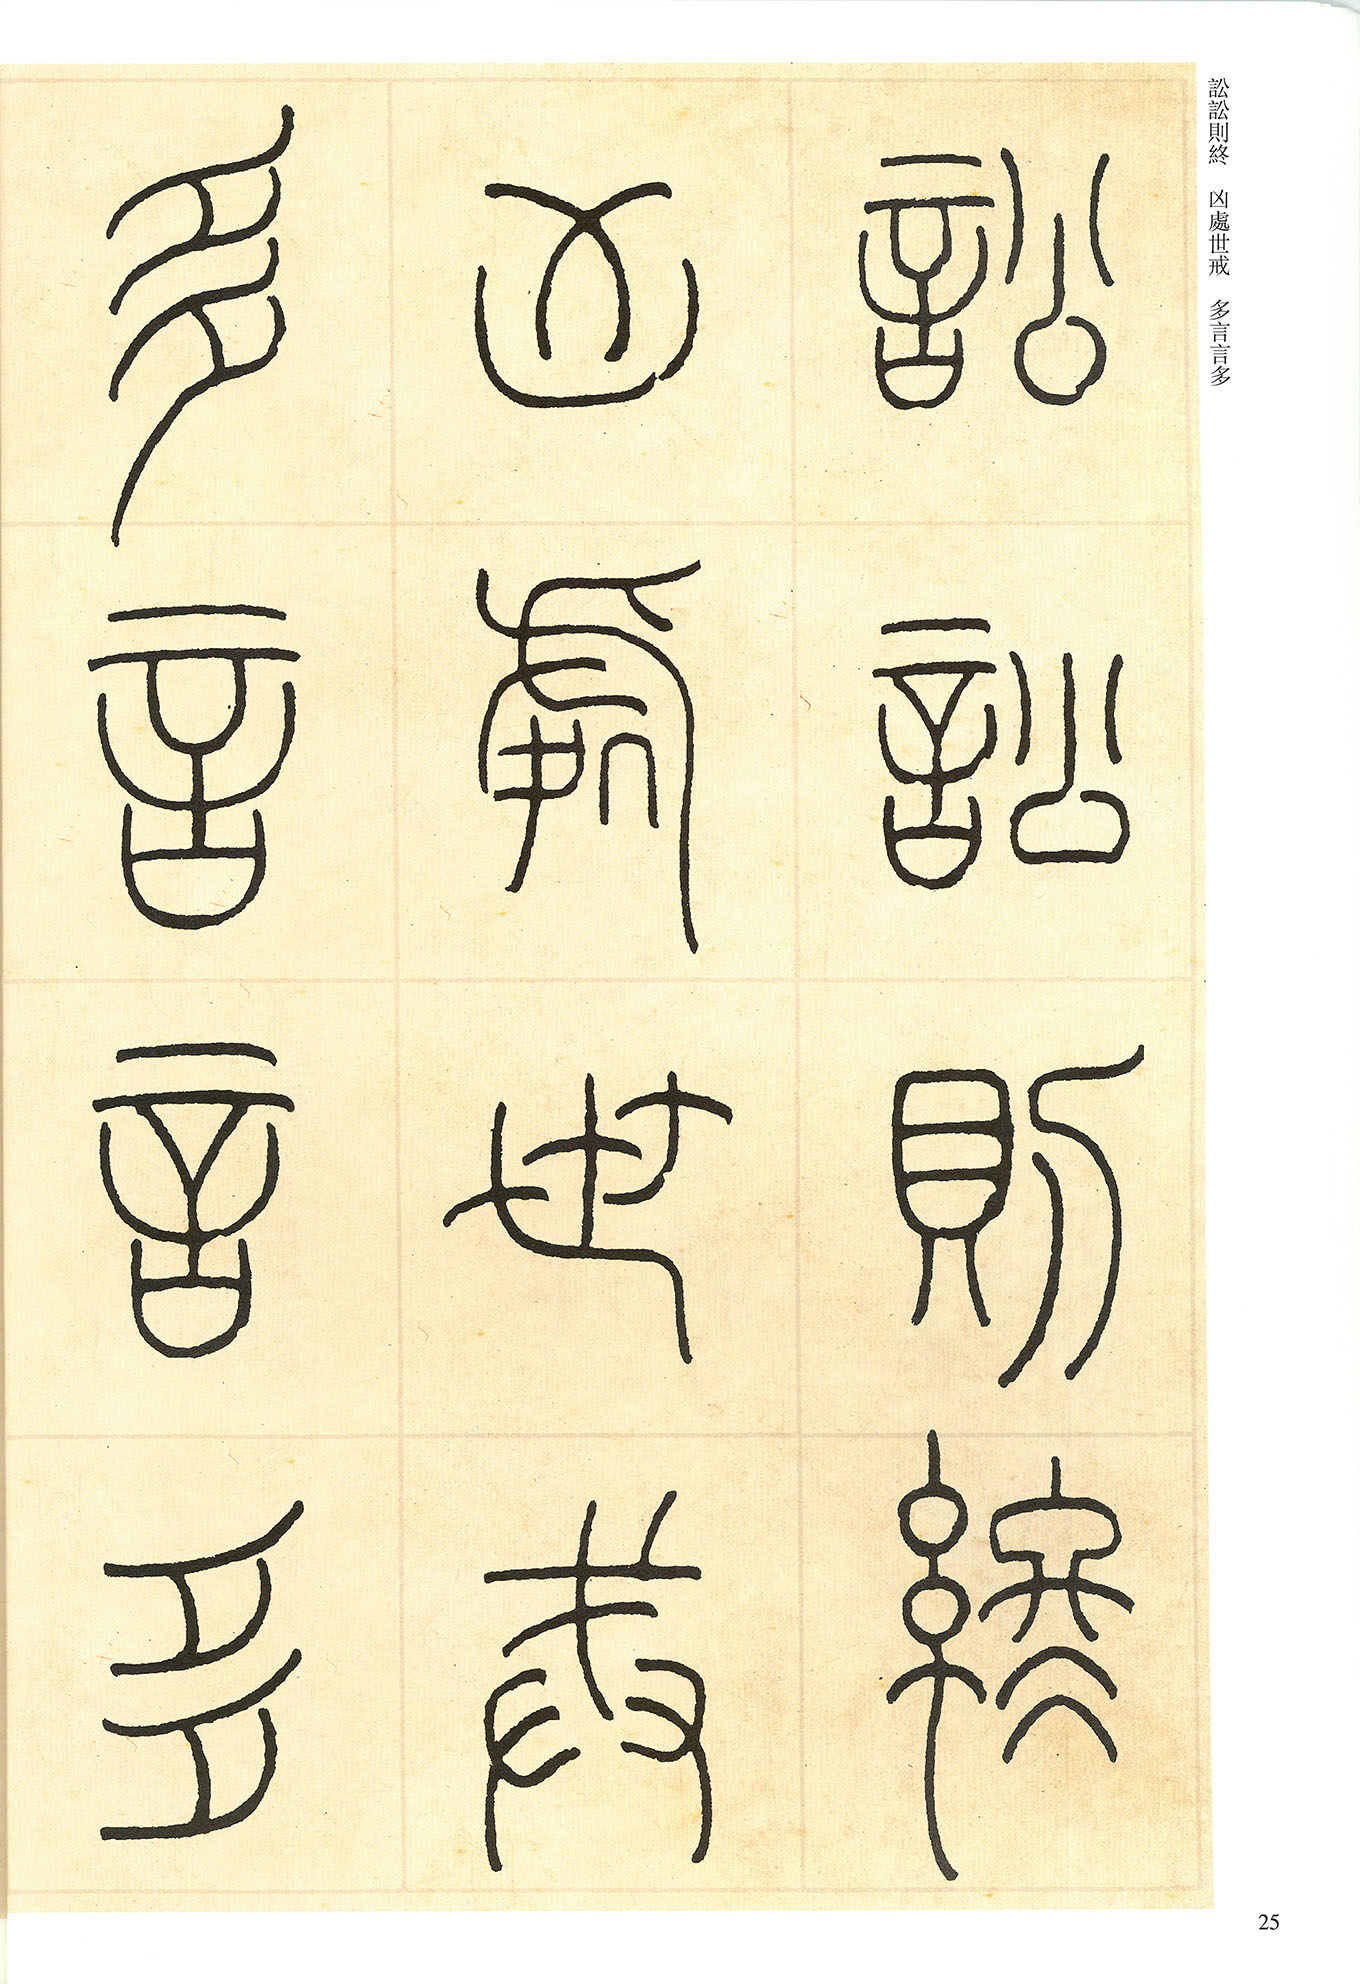 訟訟則終　凶處世戒　多言言多
訟訟則終
凶處世戒
多言言多
25